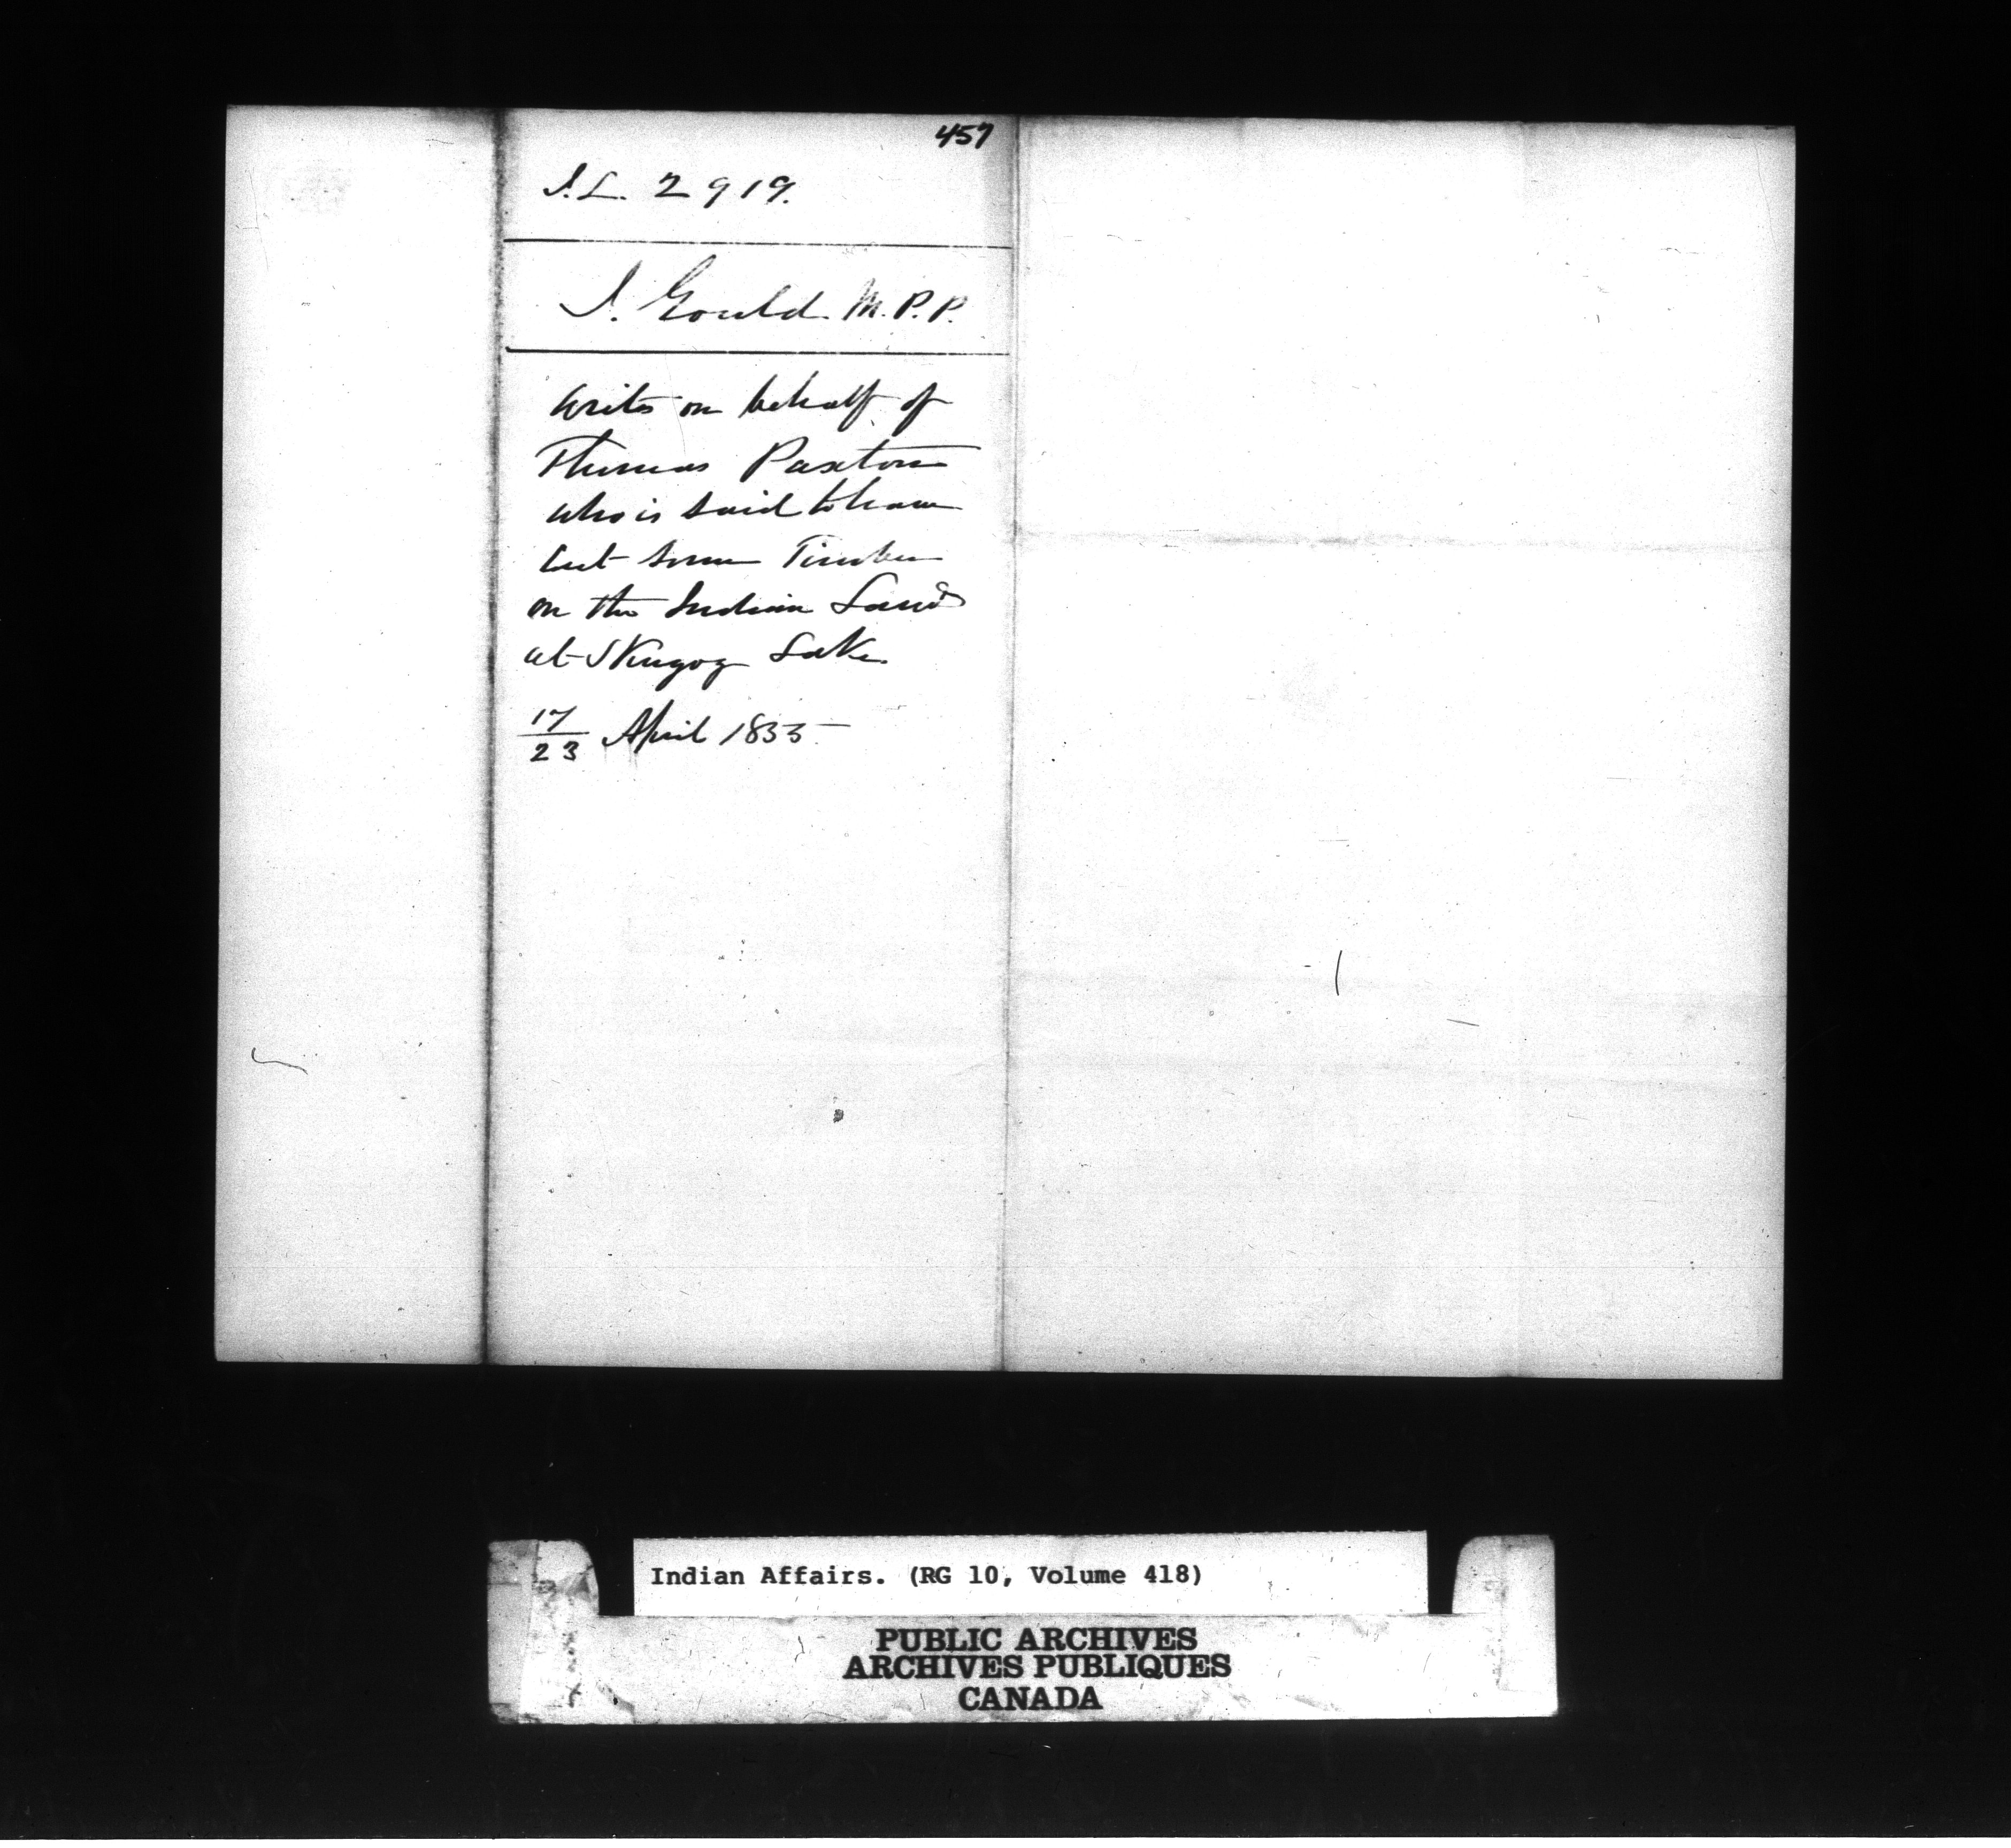 457
I.L. 2919.
J. Gould. M.P.P.
writes on behalf of
Thomas Paxton
who is said to have
cut some Timber
on the Indian Lands
at Skugog Lake
17/23 April 1855
Indian Affairs. (RG 10, Volume 418)
PUBLIC ARCHIVES
ARCHIVES PUBLIQUES
CANADA